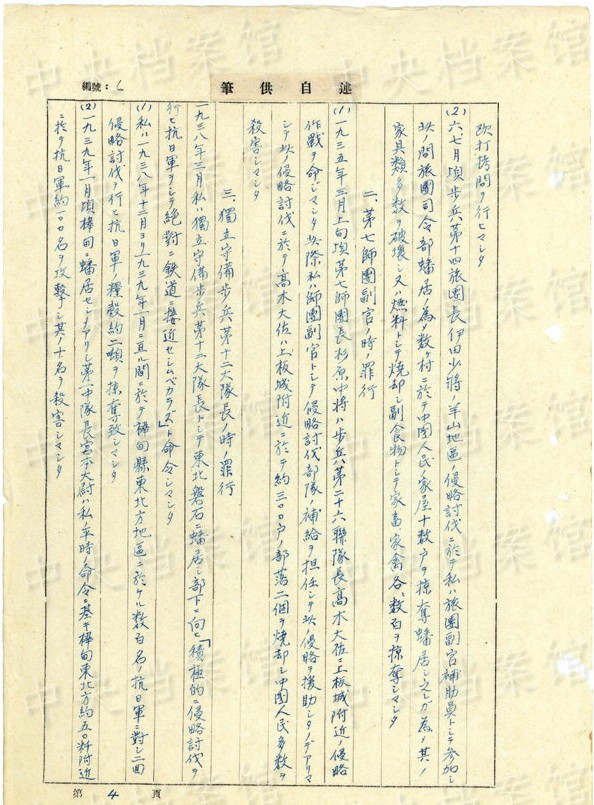 編號：6
筆供自述
欧打拷問ヲ行ヒマシタ
(2) 六、七月頃歩兵第十四旅團長伊田少將ノ羊山地區ノ侵略討伐ニ於テ私ハ旅團副官補助員トシテ参加シ
此ノ間旅團司令部蟠居ノ為メ数ヶ村ニ於テ中國人民ノ家屋十数戸ヲ掠奪蟠居シ之レガ為メ其ノ
家具類多数ヲ破壞シ又ハ燃料トシテ焼却シ副食物トシテ家畜家禽各、数百ヲ掠奪シマシタ
二、第七師團副官ノ時ノ罪行
(1) 一九三五年三月上旬頃第七師團長杉原中將ハ歩兵第二十六聯隊長高木大佐ニ上板城附近ノ侵略
作戰ヲ命ジマシタ此際私ハ師團副官トシテ侵略討伐部隊ノ補給ヲ担任シテ此ノ侵略ヲ援助シタノデアリマ
シテ此ノ侵略討伐ニ於テ高木大佐ハ上板城附近ニ於テ約三〇〇戸ノ部落二個ヲ焼却シ中國人民多数ヲ
殺害シマシタ
三、獨立守備歩兵第十二大隊長ノ時ノ罪行
一九三八年三月私ハ獨立守備歩兵第十二大隊長トシテ東北磐石ニ蟠居シ部下ニ向ヒ「積極的ニ侵略討伐ヲ
行ヒ抗日軍ヲシテ絶對ニ鉄道ニ接近セシムベカラズ」ト命令シマシタ
(1) 私ハ一九三八年十二月ヨリ一九三九年一月ニ亘ル間ニ於テ樺甸縣東北方地區ニ於ケル数百名ノ抗日軍ニ對シ二回
侵略討伐ヲ行ヒ抗日軍ノ糧穀約二噸ヲ掠奪致シマシタ
(2) 一九三九年一月頃樺甸ニ蟠居セシメアリシ第一中隊長宮本大尉ハ私ノ平時ノ命令ニ基キ樺甸東北方約五〇粁附近
ニ於テ抗日軍約一〇〇名ヲ攻撃シ其ノ十名ヲ殺害シマシタ
第 4 頁